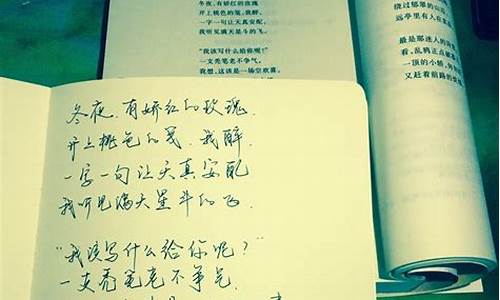 冬夜，有娇红的玫瑰
开上桃色的笺，我醉，
一字一句让天真安配，
我听见满天星斗的飞。
“我该写什么给你呢？”
一支秃笔老不争气，
我想，这该是一场空欢喜。
绕过郁翠的山
远亭里有人在
最是那迷人的
看，乱鸦正点破
一顶的小轿，
又赶着前路的
冬夜，有娇红的玫瑰
开上桃色的笺，我醉，
一字一句让天真安配
我听见满天星斗的飞．
“我该写什么给你呢？”
一支秃笔老不争气，